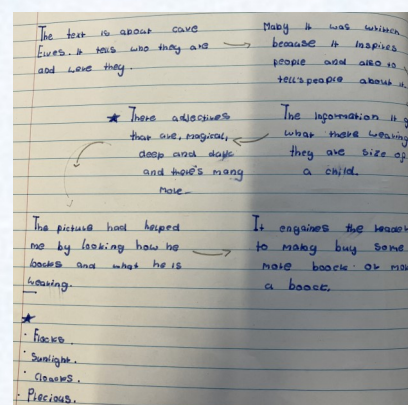 The text is about cave
Elves. It tells who they are
and were they.
Maby it was writtch
because it inspires
people and also to
tell's people about it.
★ There adjectives
that are, magical,
deep and dark
and there's many
more.
The information it
what there wearing
they are size of
a child.
The picture had helped
me by looking how he
loocks and what he is
wearing.
It engaines the reader
to maby buy some
more boock or
a boock.
★
· Flocks.
· Sunlight.
· Cloackes.
· Precious.